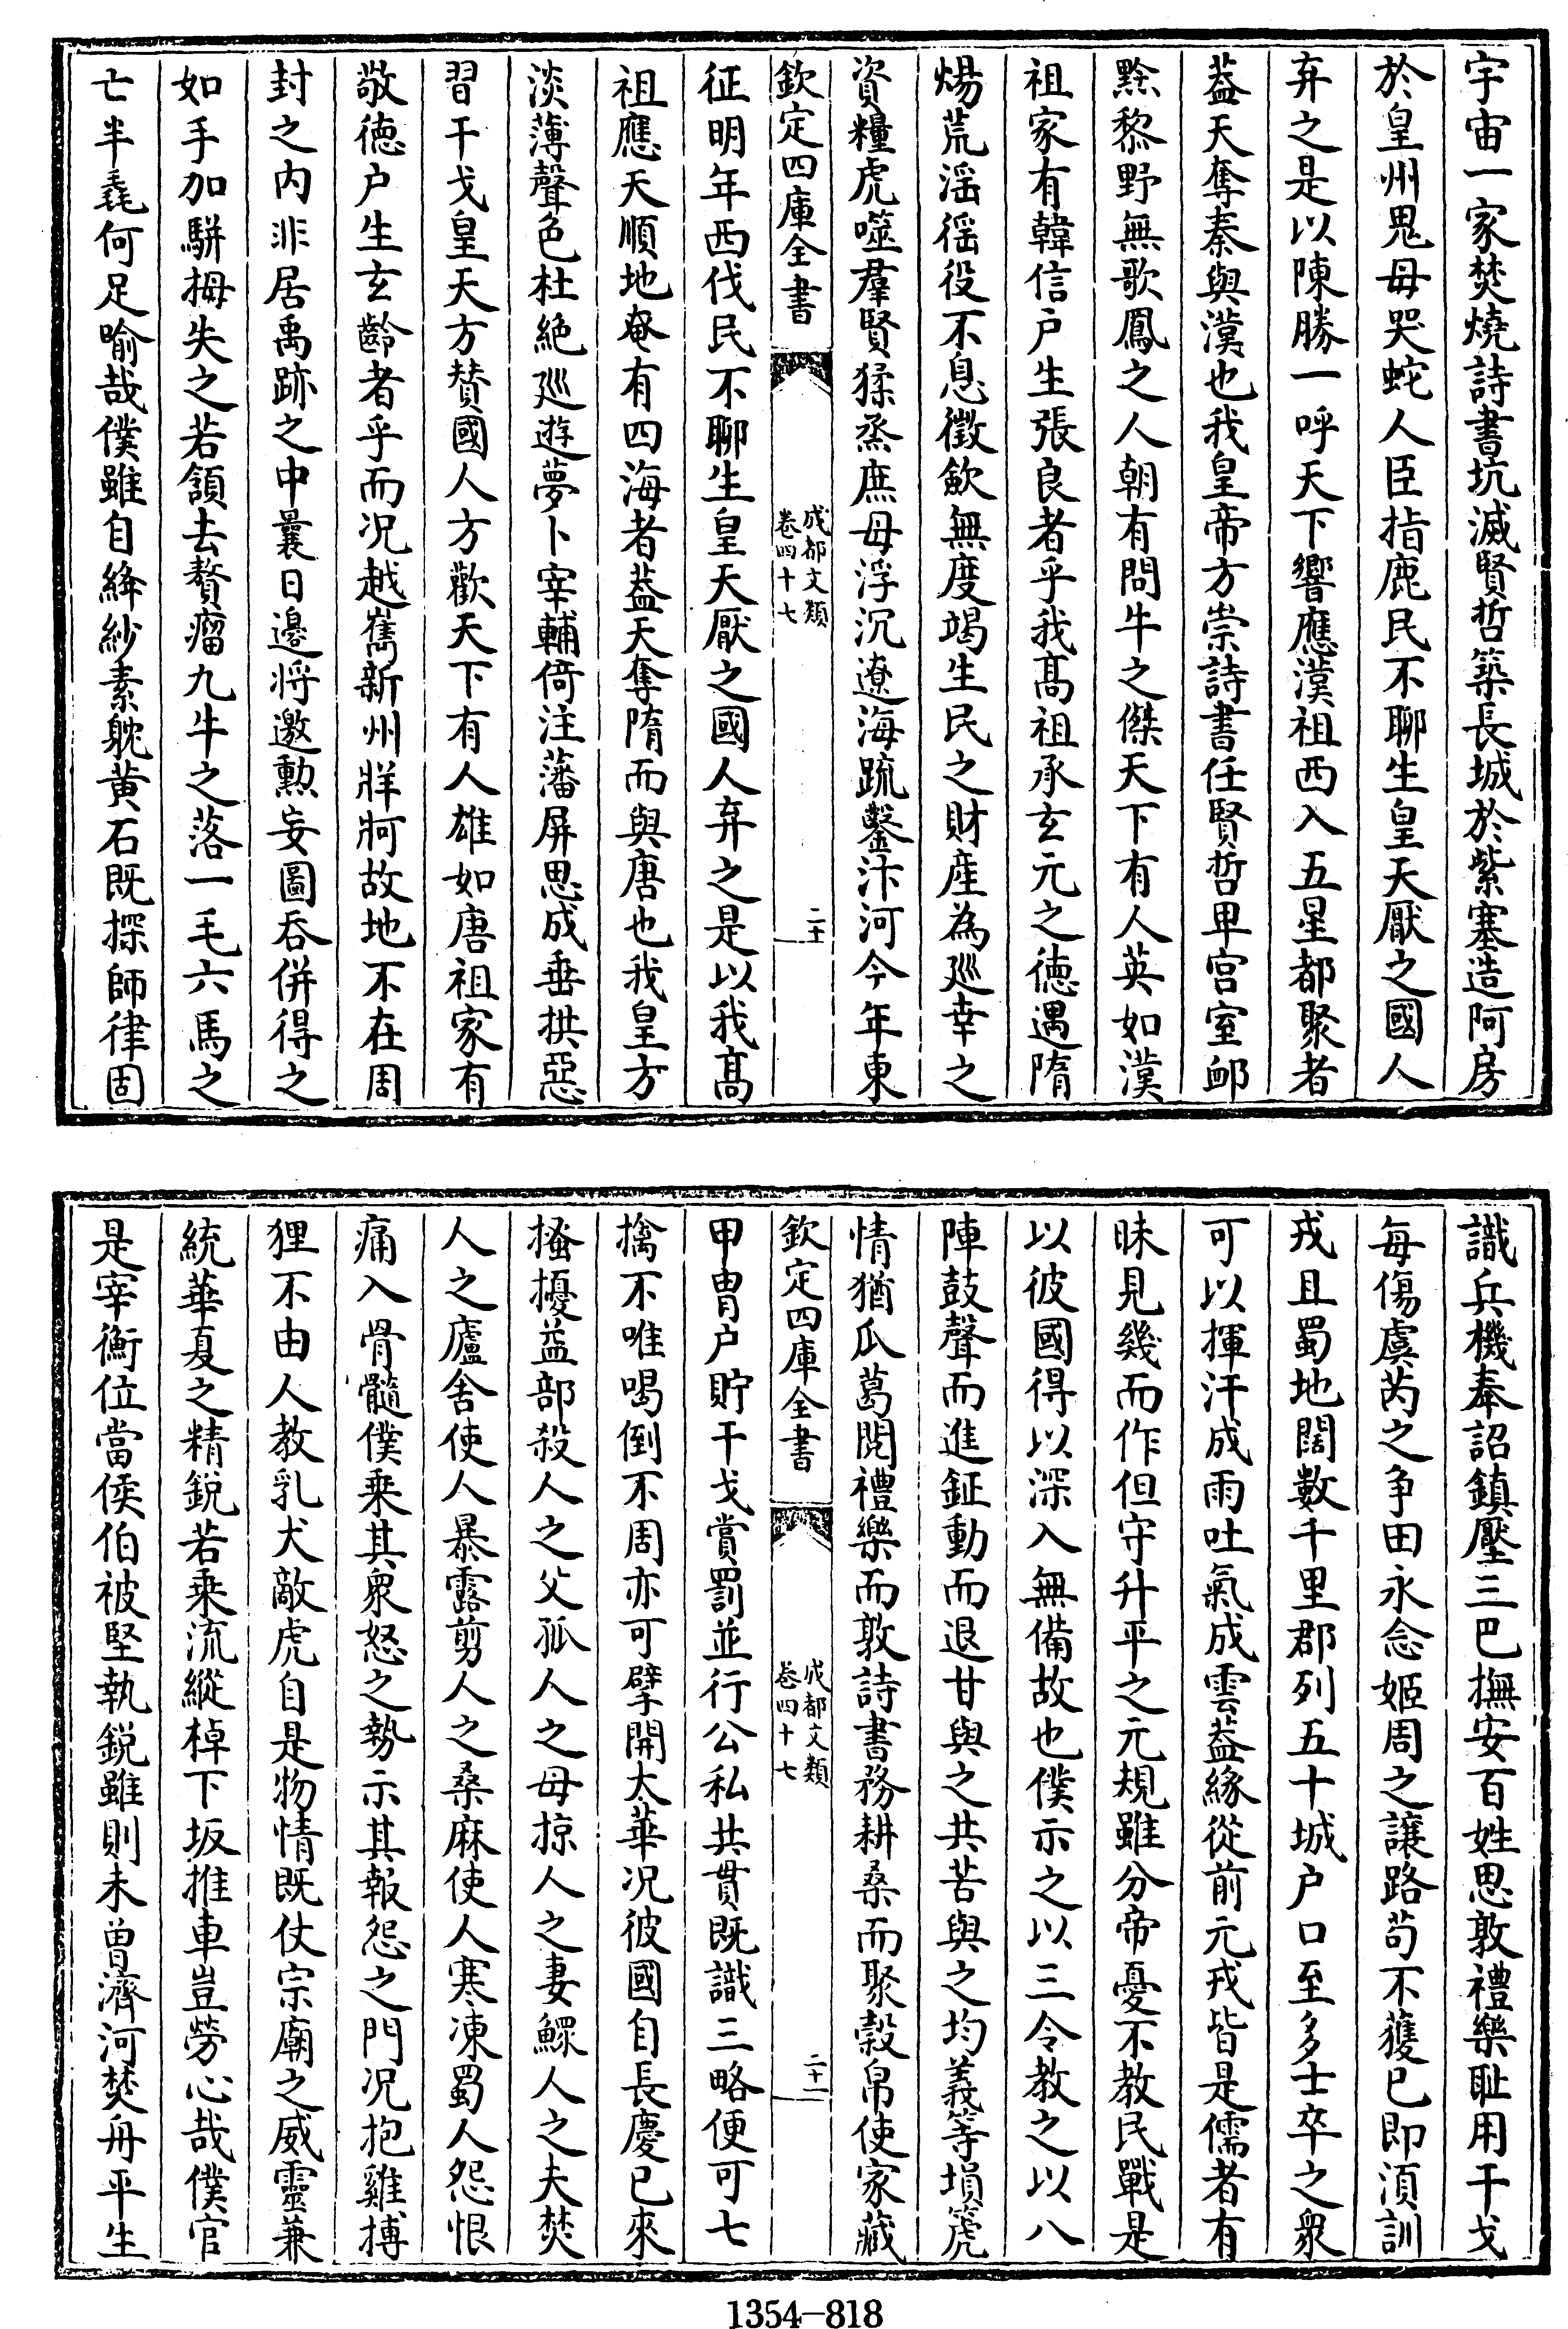 宇宙一家焚燒詩書坑滅賢哲築長城於紫塞造阿房
於皇州鬼母哭蛇人臣指鹿民不聊生皇天厭之國人
弃之是以陳勝一呼天下響應漢祖西入五星都聚者
葢天奪秦與漢也我皇帝方崇詩書任賢哲卑宫室卹
黔黎野無歌鳳之人朝有問牛之傑天下有人英如漢
祖家有韓信户生張良者乎我髙祖承玄元之徳遇隋
煬荒滛徭役不息徵斂無度竭生民之財産為廵幸之
資糧虎噬羣賢猱烝庶母浮沉遼海疏鑿汴河今年東
欽定四庫全書
成都文類
卷四十七
二十
征明年西伐民不聊生皇天厭之國人弃之是以我髙
祖應天順地奄有四海者葢天奪隋而與唐也我皇方
淡薄聲色杜絶廵遊夢卜宰輔倚注藩屏思成垂拱惡
習干戈皇天方賛國人方歡天下有人雄如唐祖家有
敬徳户生玄齡者乎而况越嶲新州牂牁故地不在周
封之内非居禹跡之中曩日邉将邀勲妄圖吞併得之
如手加駢拇失之若頷去贅瘤九牛之落一毛六馬之
亡半毳何足喻哉僕雖自絳紗素躭黄石既探師律固
識兵機奉詔鎮壓三巴撫安百姓思敦禮樂耻用干戈
每傷虞芮之争田永念姬周之讓路苟不獲已即湏訓
戎且蜀地闊數千里郡列五十城户口至多士卒之衆
可以揮汗成雨吐氣成雲葢緣從前元戎皆是儒者有
昧見幾而作但守升平之元規雖分帝憂不教民戰是
以彼國得以深入無備故也僕示之以三令教之以八
陣鼓聲而進鉦動而退甘與之共苦與之均義等塤箎
情猶瓜葛閲禮樂而敦詩書務耕桑而聚榖帛使家藏
欽定四庫全書
成都文類
卷四十七
二十一
甲胄户貯干戈賞罰並行公私共貫既識三略便可七
擒不唯喝倒不周亦可擘開太華况彼國自長慶已來
搔擾益部殺人之父孤人之母掠人之妻鰥人之夫焚
人之廬舍使人暴露剪人之桑麻使人寒凍蜀人怨恨
痛入骨髓僕乗其衆怒之勢示其報怨之門况抱雞搏
狸不由人教乳犬敵虎自是物情既仗宗廟之威靈兼
統華夏之精鋭若乗流縱棹下坂推車豈勞心哉僕官
是宰衡位當侯伯被堅執鋭雖則未曽濟河焚舟平生
1354—818